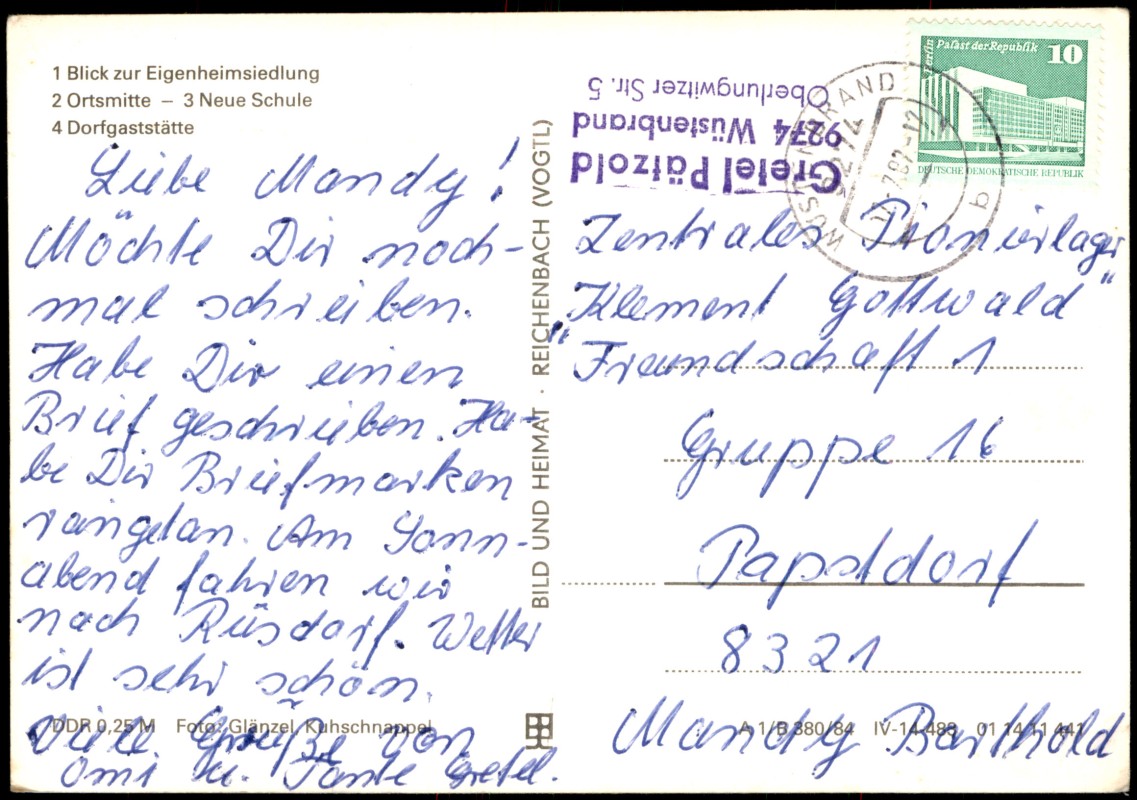 1 Blick zur Eigenheimsiedlung
2 Ortsmitte – 3 Neue Schule
4 Dorfgaststätte
Liebe Mandy!
Möchte Dir noch-
mal schreiben.
Habe Dir einen
Brief geschrieben. Ha-
be Dir Briefmarken
rangetan. Am Sonn-
abend fahren wir
nach Rüsdorf. Wetter
ist sehr schön.
Viele Grüße von
Omi u. Tante Gretel.
DDR 0,25 M Foto: Glänzel, Kuhschnappel
BILD UND HEIMAT · REICHENBACH (VOGTL)
Gretel Pätzold
9274 Wüstenbrand
Oberlungwitzer Str. 5
WÜSTENBRAND
9274
b
Berlin Palast der Republik 10
DEUTSCHE DEMOKRATISCHE REPUBLIK
Zentrales Pionierlager
Klement Gottwald"
"Freundschaft 1
Gruppe 16
Papstdorf
8321
Mandy Barthold
A 1/B 380/84 IV-14-483 01 14 11 441